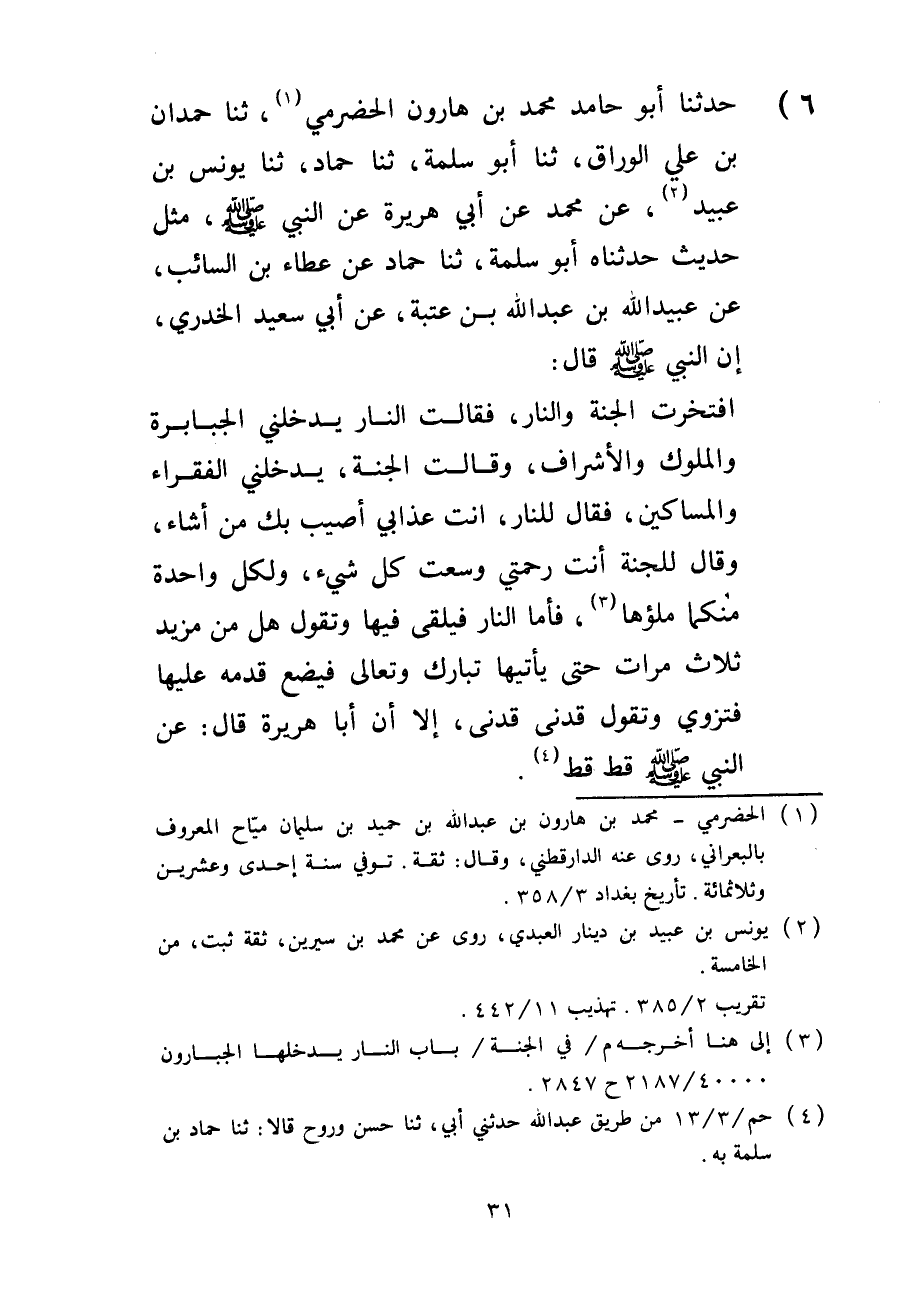 ٦ ) حدثنا أبو حامد محمد بن هارون الحضرمي(١)، ثنا حمدان
بن علي الوراق، ثنا أبو سلمة، ثنا حماد، ثنا يونس بن
عبيد(٢)، عن محمد عن أبي هريرة عن النبي ﷺ، مثل
حديث حدثناه أبو سلمة، ثنا حماد عن عطاء بن السائب،
عن عبيدالله بن عبدالله بـن عتبة، عن أبي سعيد الخدري،
إن النبي ﷺ قال:
افتخرت الجنة والنار، فقالـت النـار يـدخلني الجبـابـرة
والملوك والأشراف، وقـالـت الجنـة، يـدخلني الفقـراء
والمساكين، فقال للنار، انت عذابي أصيب بك من أشاء،
وقال للجنة أنت رحمتي وسعت كل شيء، ولكل واحدة
منكما ملؤها(٣)، فأما النار فيلقى فيها وتقول هل من مزيد
ثلاث مرات حتى يأتيها تبارك وتعالى فيضع قدمه عليها
فتزوي وتقول قدنى قدنى، إلا أن أبا هريرة قال: عن
النبي ﷺ قط قط(٤).
(١) الحضرمي ـ محمد بن هارون بن عبدالله بن حميد بن سليمان ميّاح المعروف
بالبعراني، روى عنه الدارقطني، وقال: ثقة. تـوفي سنـة إحـدى وعشريـن
وثلاثمائة. تأريخ بغداد ٣٥٨/٣.
(٢) يونس بن عبيد بن دينار العبدي، روى عن محمد بن سيرين، ثقة ثبت، من
الخامسة.
تقريب ٣٨٥/٢. تهذيب ٤٤٢/١١.
(٣) إلى هنـا أخـرجـه م/ في الجنـة/ بـاب النـار يـدخلهـا الجبـارون
٢١٨٧/٤٠٠٠٠ ح ٢٨٤٧.
(٤) حم/١٣/٣ من طريق عبدالله حدثني أبي، ثنا حسن وروح قالا: ثنا حماد بن
سلمة به.
٣١